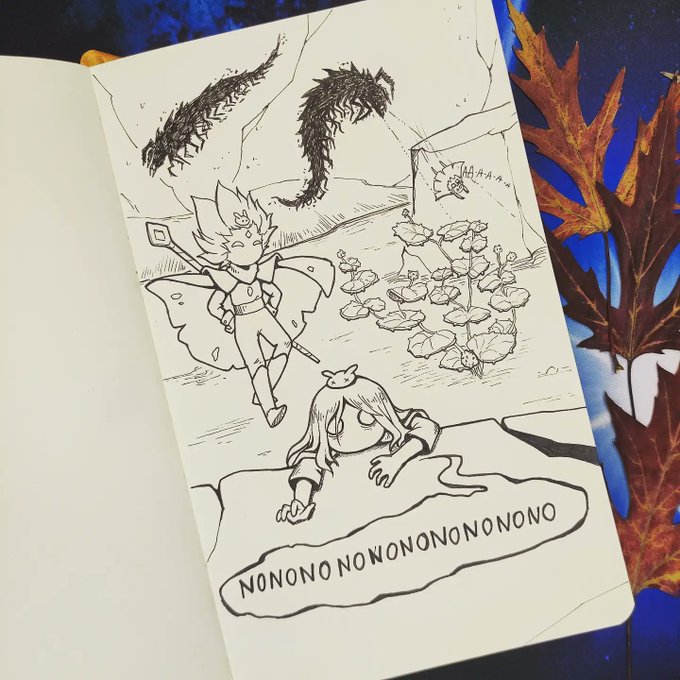 AA-A-A-A-A
NONONONONONONONONONO